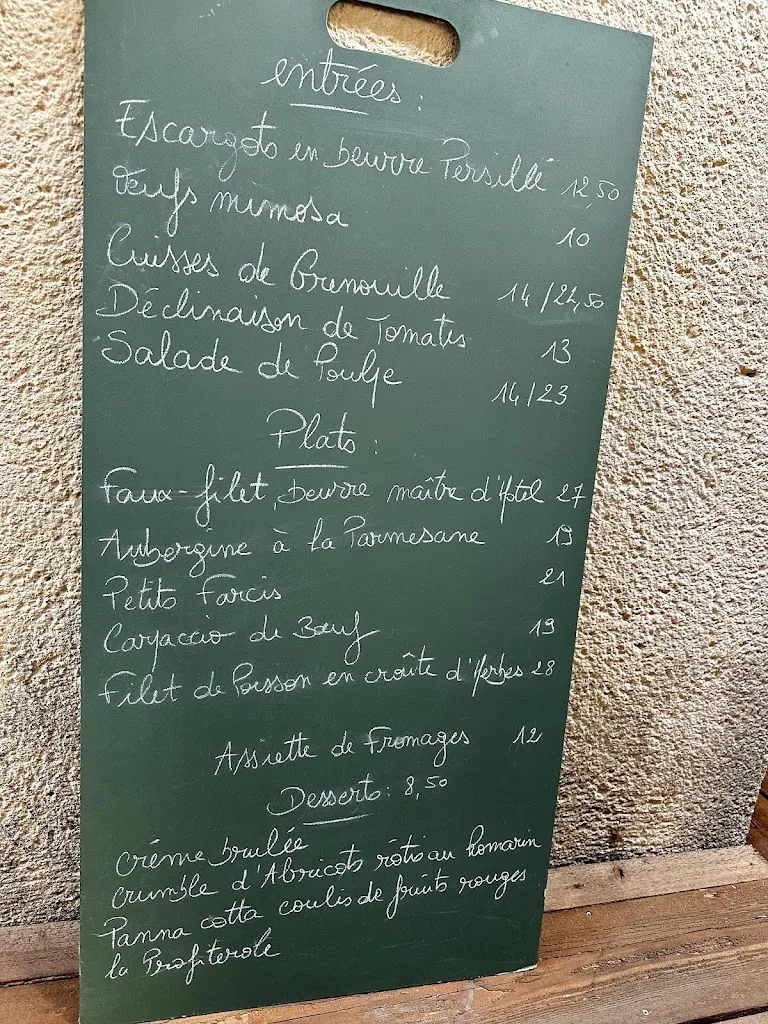 entrées :
Escargots en beurre Persillé 12,50
Oeufs mimosa 10
Cuisses de Grenouille 14/24,50
Déclinaison de Tomates 13
Salade de Poulpe 14/23
Plats :
Faux-filet, beurre maître d'Hotel 27
Aubergine à la Parmesane 19
Petits Farcis 21
Carpaccio de Bœuf 19
Filet de Poisson en croûte d'Herbes 28
Assiette de Fromages 12
Desserts : 8,50
crème brulée
crumble d'Abricots rôtis au Romarin
Panna cotta coulis de fruits rouges
la Profiterole